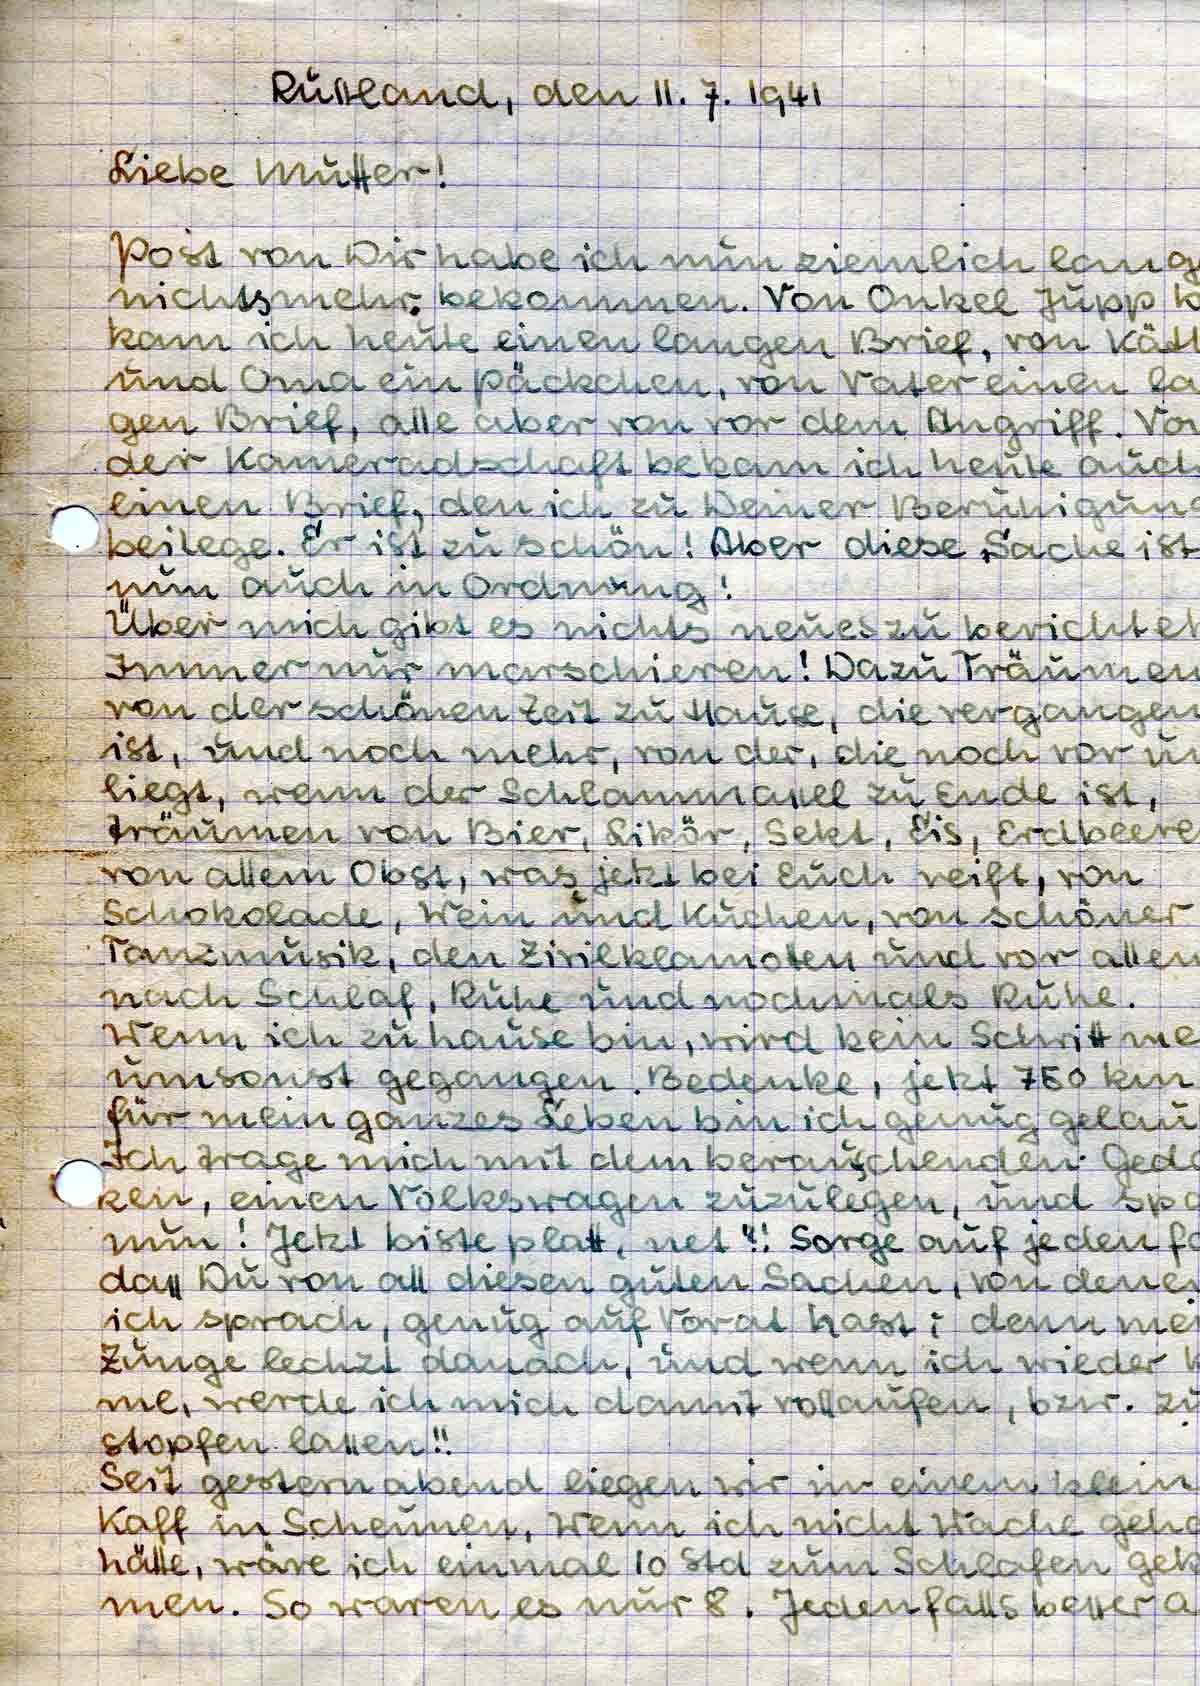 Rußland, den 11. 7. 1941
Liebe Mutter!
Post von Dir habe ich nun ziemlich lang
nichts mehr bekommen. Von Onkel Jupp
kam ich heute einen langen Brief, von Kät
und Oma ein Päckchen, von Vater einen la
gen Brief, alle aber von vor dem Angriff. Vo
der Kameradschaft bekam ich heute auch
einen Brief, den ich zu Deiner Beruhigun
beilege. Er ist zu schön! Aber diese Sache ist
nun auch in Ordnung!
Über mich gibt es nichts neues zu berichte
Immer nur marschieren! Dazu Träumen
von der schönen Zeit zu Hause, die vergangen
ist, und noch mehr, von der, die noch vor un
liegt, wenn der Schlammassel zu Ende ist,
träumen von Bier, Likör, Sekt, Eis, Erdbeere
von allem Obst, was jetzt bei Euch reift, von
Schokolade, Wein und Kuchen, von schöner
Tanzmusik, den Zivilklamotten und vor allen
nach Schlaf, Ruhe und nochmals Ruhe.
Wenn ich zu hause bin, wird kein Schritt me
umsonst gegangen. Bedenke, jetzt 750 km
für mein ganzes Leben bin ich genug gelau
Ich trage mich mit dem berauschenden Geda
ken, einen Volkswagen zuzulegen, und spa
nun! Jetzt biste platt, net?!! Sorge auf jeden fa
daß Du von all diesen guten Sachen, von denen
ich sprach, genug auf Vorat hast; denn mei
Zunge lechzt danach, und wenn ich wieder k
me, werde ich mich damit vollaufen, bzw. zu
stopfen lassen!!
Seit gestern abend liegen wir in einem klein
Kaff in Scheunen, Wenn ich nicht Wache geha
hätte, wäre ich einmal 10 Std zum Schlafen gek
men. So waren es nur 8. Jedenfalls besser a